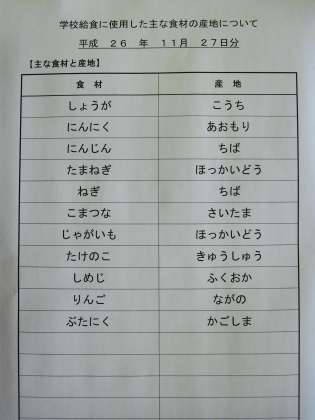 学校給食に使用した主な食材の産地について
平成 26 年 11月 27日分
【主な食材と産地】
食 材 産 地
しょうが こうち
にんにく あおもり
にんじん ちば
たまねぎ ほっかいどう
ねぎ ちば
こまつな さいたま
じゃがいも ほっかいどう
たけのこ きゅうしゅう
しめじ ふくおか
りんご ながの
ぶたにく かごしま